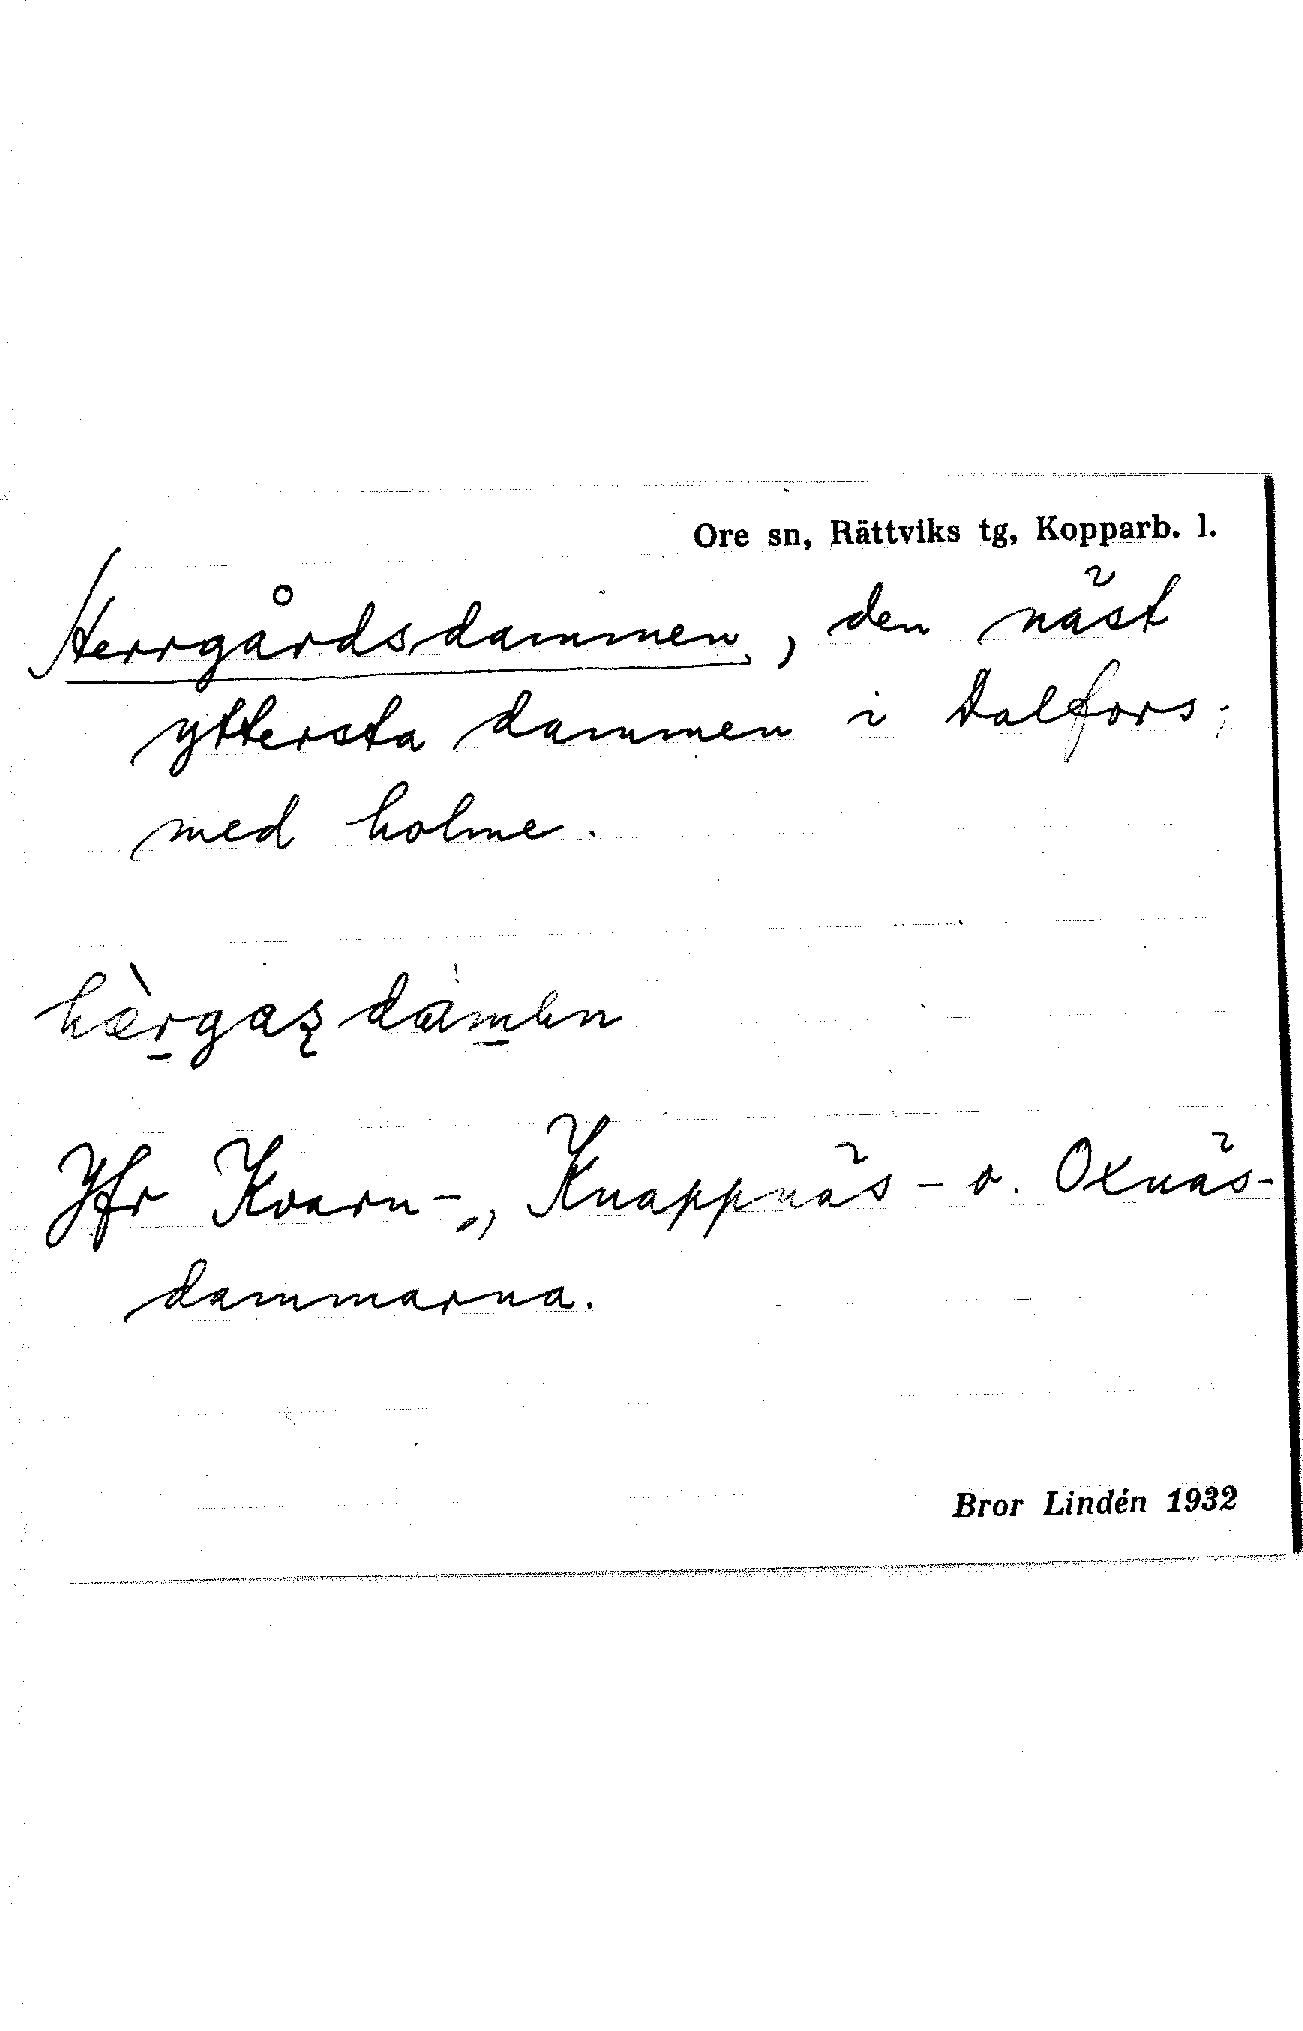 Ore sn, Rättviks tg, Kopparb. l.
Herrgårdsdammen, den näst
yttersta dammen i Dalfors;
med holme.
hær̲gaʂdam̲ən
Jfr Kvarn-, Knappnäs- o. Oxnäs-
dammarna.
Bror Lindén 1932